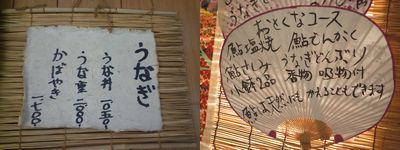 うなぎ
うな丼 一〇五〇
うな重 二一〇〇
かばやき 一七〇〇
おとくなコース
鮎塩焼 鮎でんがく
鮎さしみ うなぎどんぶり
小鉢2品 香物 吸物付
鮎は天然にも かえることもできます